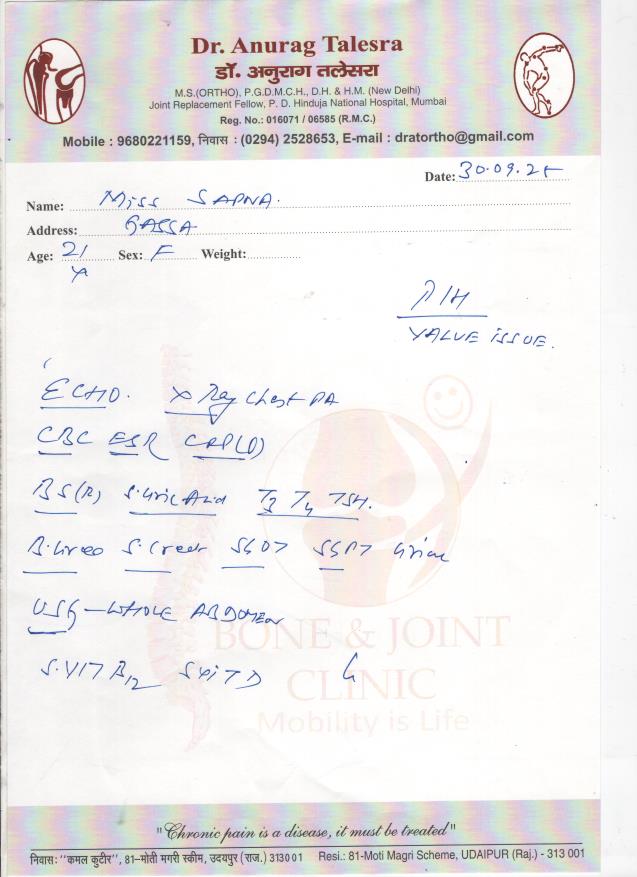 Dr. Anurag Talesra
डॉ. अनुराग तलेसरा
M.S.(ORTHO), P.G.D.M.C.H., D.H. & H.M. (New Delhi)
Joint Replacement Fellow, P. D. Hinduja National Hospital, Mumbai
Reg. No.: 016071 / 06585 (R.M.C.)
Mobile : 9680221159, निवास : (0294) 2528653, E-mail : dratortho@gmail.com
Date: 30.09.25
Name: Miss SAPNA.
Address:
Age: 21 Sex: F Weight:
VALVE ISSUE.
ECHO. X Ray Chest PA
CBC ESR CRP(Q)
BS(R) S. Uric Acid T3 T4 TSH.
B. Urea S. Creat SGOT SGPT Urine
USG - WHOLE ABDOMEN
S. VIT B12 S VIT D
BONE & JOINT
CLINIC
Mobility is Life
"Chronic pain is a disease, it must be treated"
निवास: "कमल कुटीर", 81-मोती मगरी स्कीम, उदयपुर (राज.) 313001 Resi.: 81-Moti Magri Scheme, UDAIPUR (Raj.) - 313 001